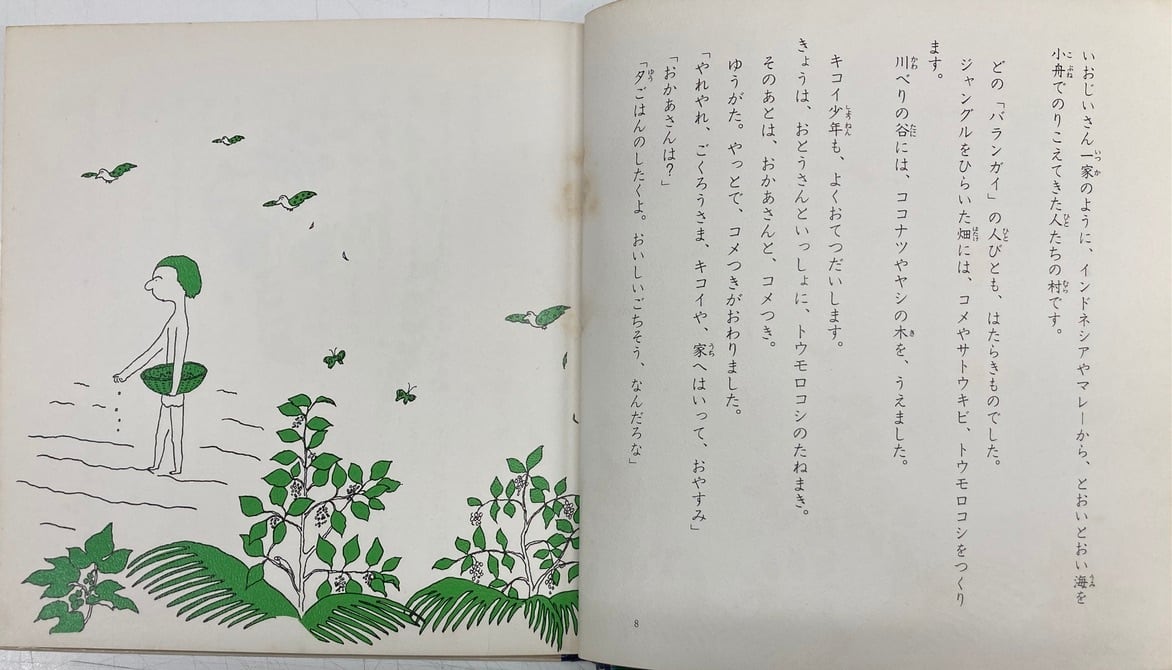 いおじいさん一家のように、インドネシアやマレーから、とおいとおい海を
小舟でのりこえてきた人たちの村です。
どの「バランガイ」の人びとも、はたらきものでした。
ジャングルをひらいた畑には、コメやサトウキビ、トウモロコシをつくり
ます。
川べりの谷には、ココナツややシの木を、うえました。
キコイ少年も、よくおてつだいします。
きょうは、おとうさんといっしょに、トウモロコシのたねまき。
そのあとは、おかあさんと、コメつき。
ゆうがた。やっとで、コメつきがおわりました。
「やれやれ、ごくろうさま、キコイや、家へはいって、おやすみ」
「おかあさんは？」
「夕ごはんのしたくよ。おいしいごちそう、なんだろな」
8